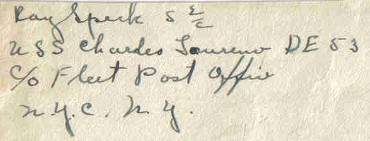 Ray Speck S 2/c
USS Charles Lawrence DE 53
c/o Fleet Post Office
N.Y.C. N.Y.